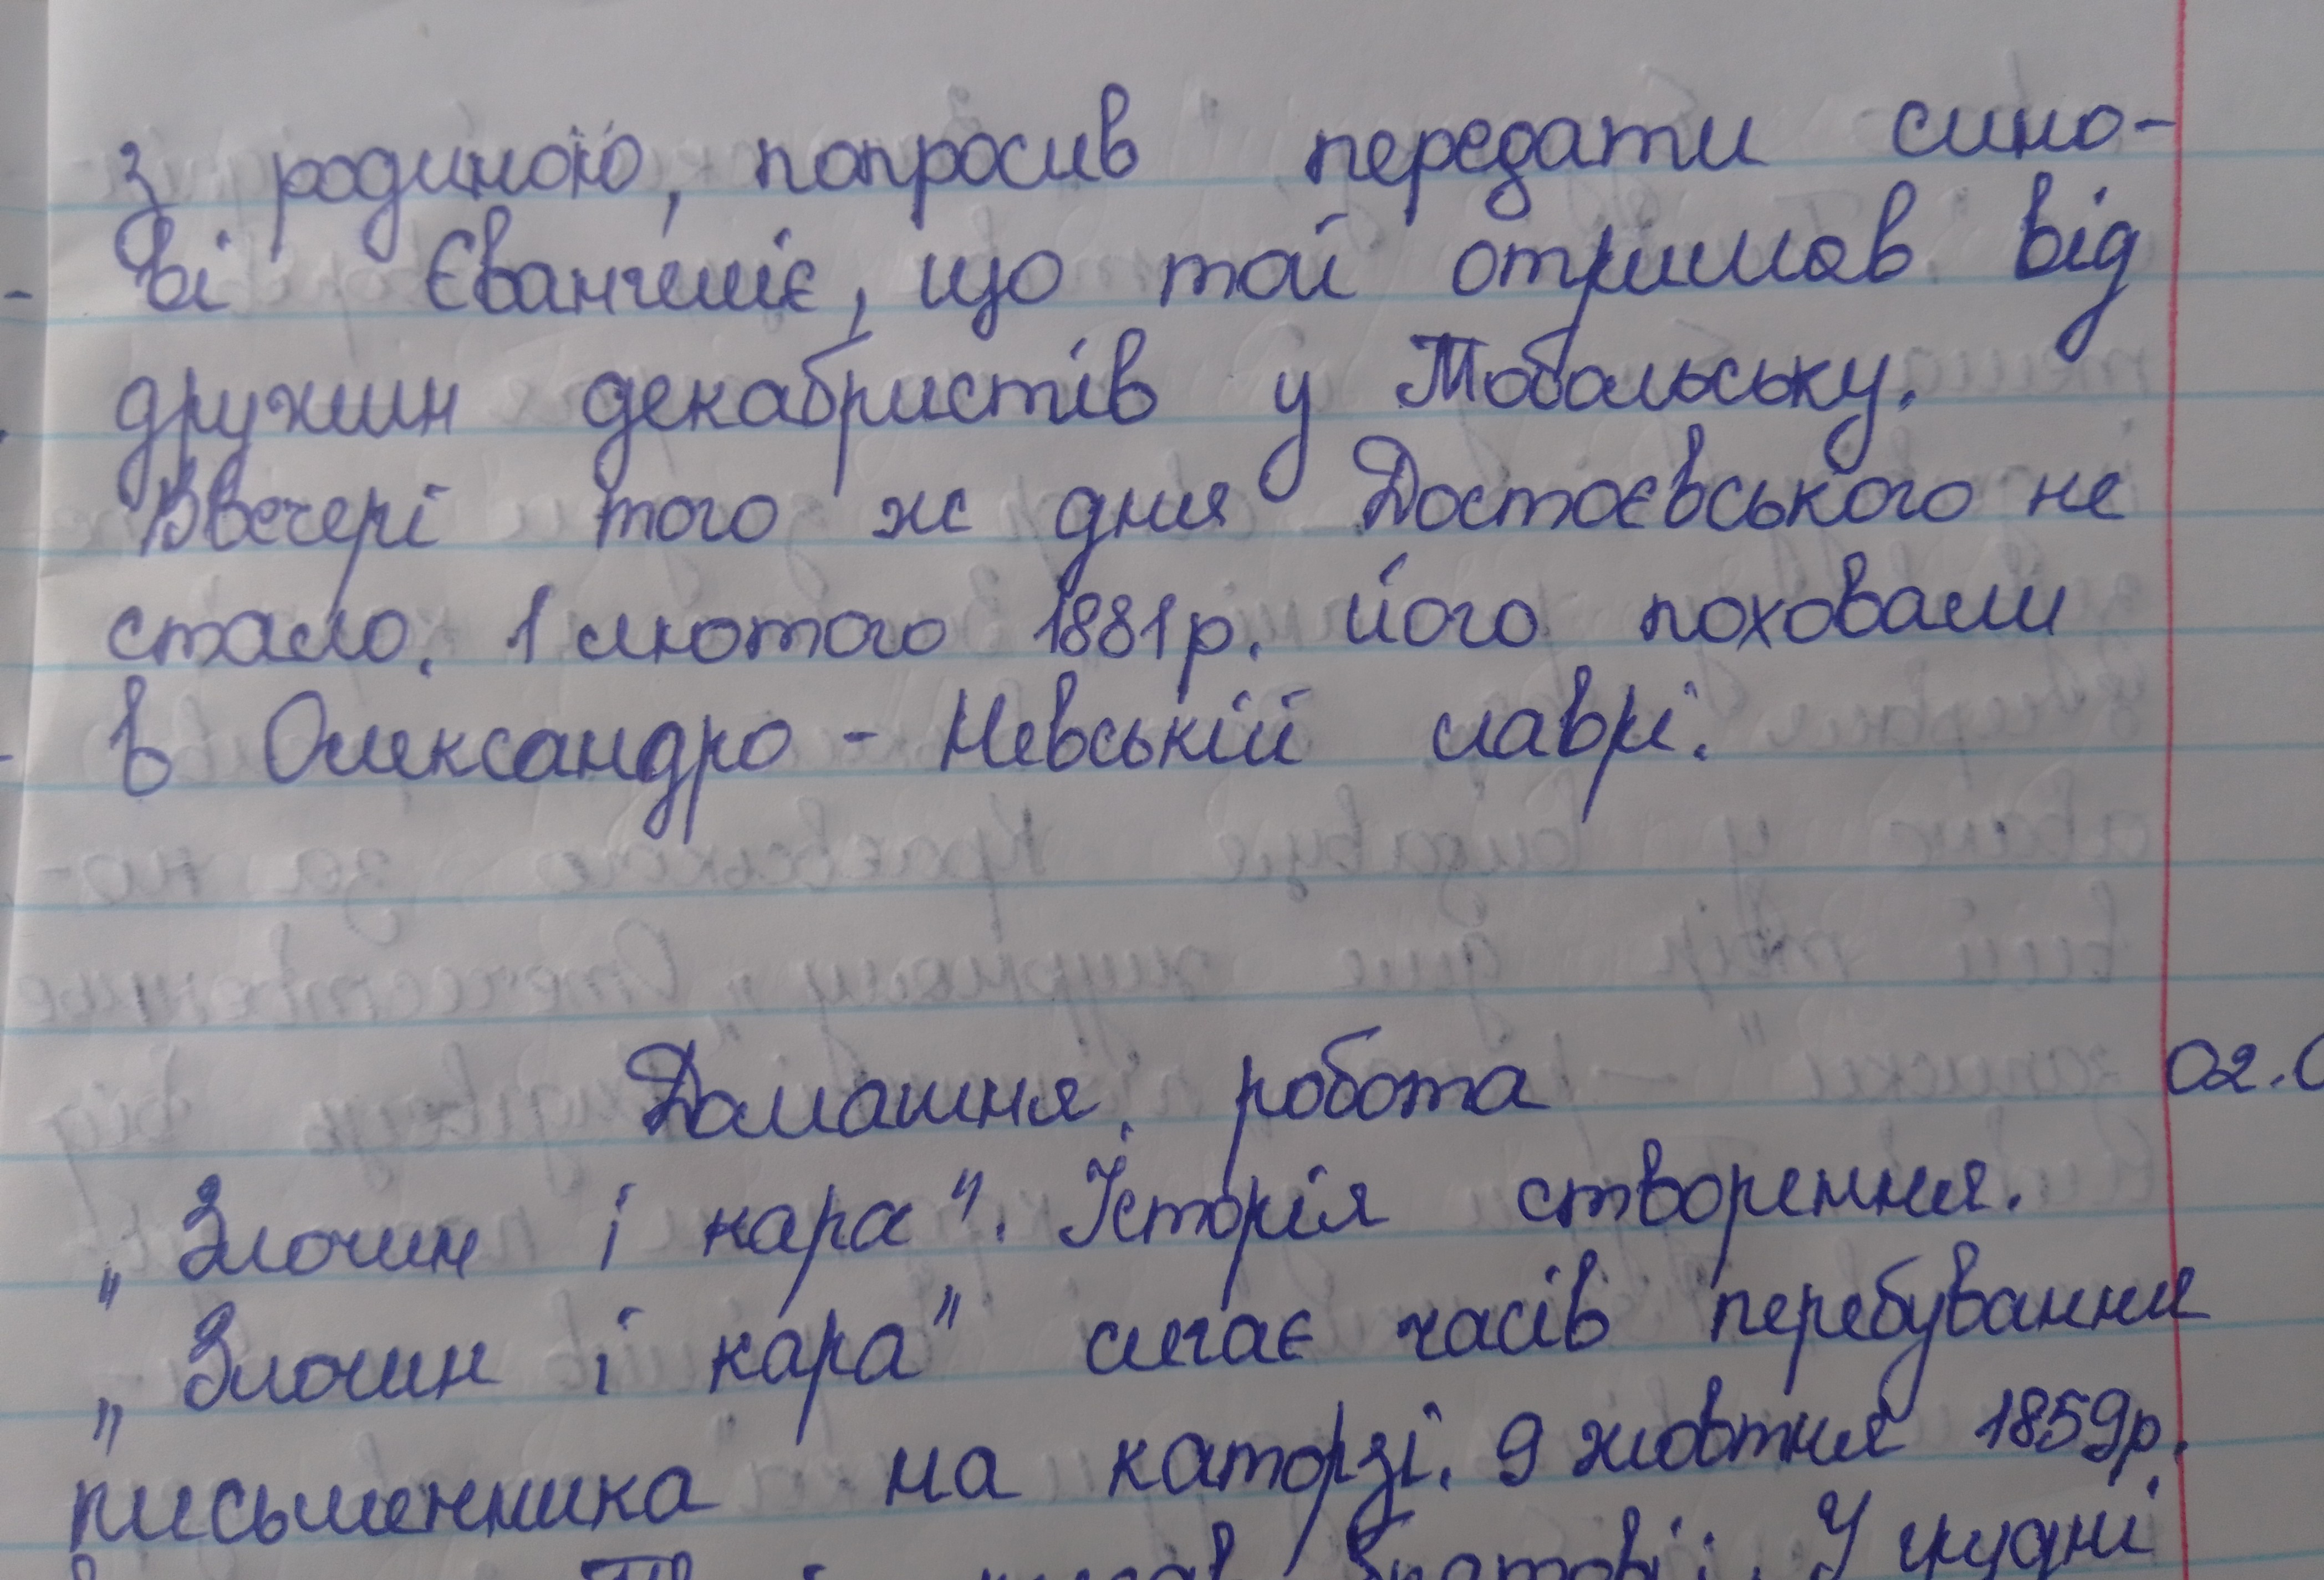 з родиною, попросив передати сино-
ві Євангеліє, що той отримав від
дружин декабристів у Тобольську.
Ввечері того ж дня Достоєвського не
стало. 1 лютого 1881р. його поховали
в Олександро - Невській лаврі.
Домашня робота 02.0
„Злочин і кара". Історія створення.
„Злочин і кара" сягає часів перебування
письменника на каторзі. 9 жовтня 1859р.
братові: У грудні